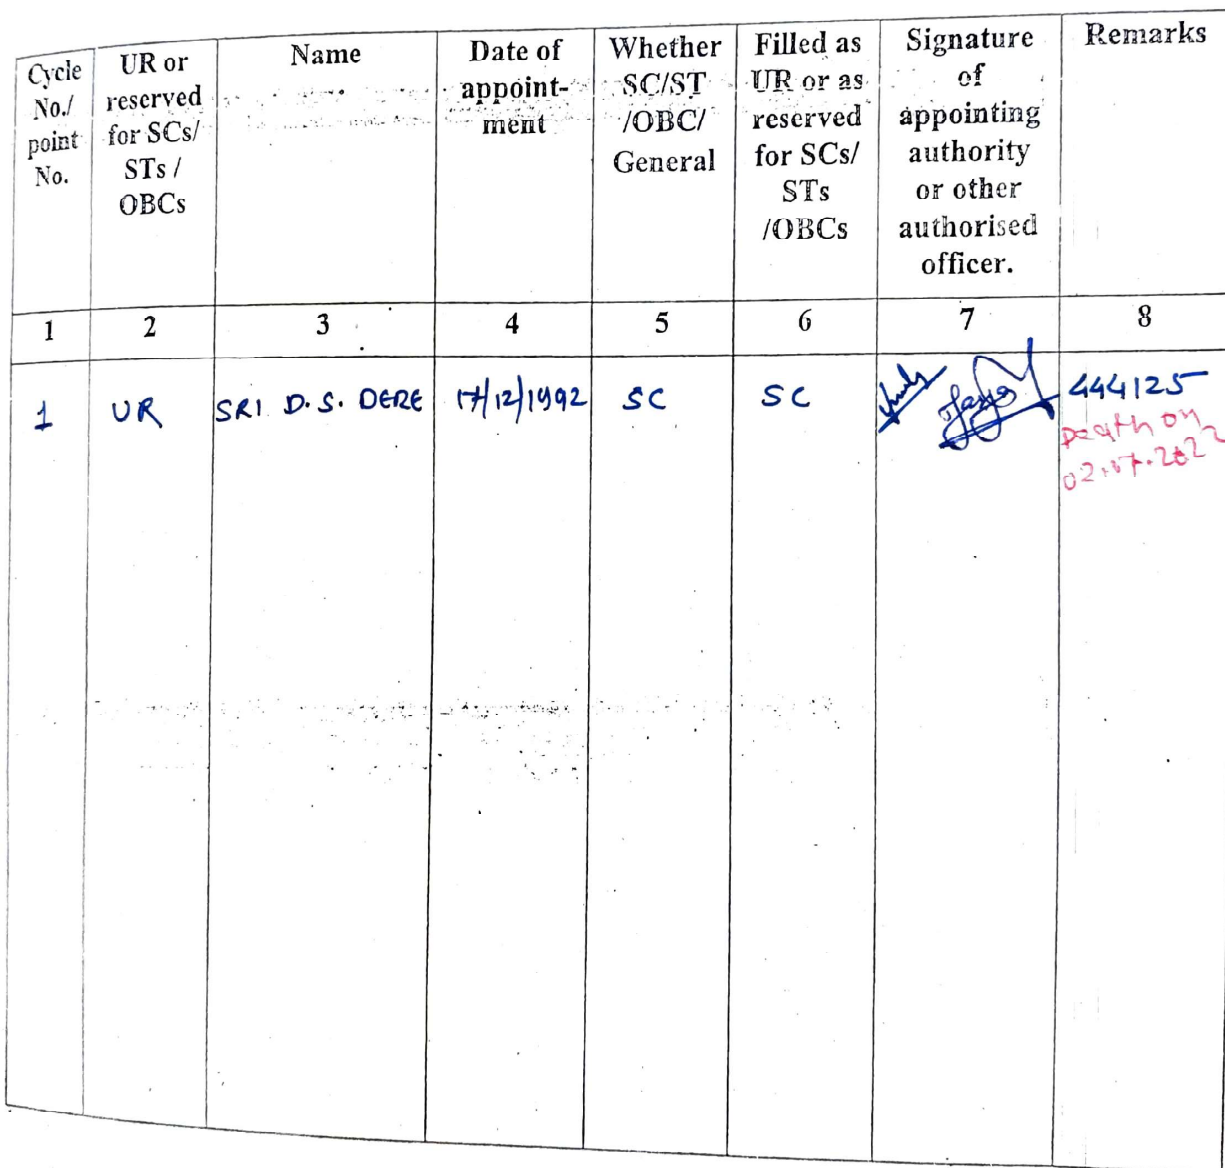 Cycle No./ point No.
UR or reserved for SCs/ STs / OBCs
Name
Date of appoint-ment
Whether SC/ST /OBC/ General
Filled as UR or as reserved for SCs/ STs /OBCs
Signature of appointing authority or other authorised officer.
Remarks
1 2 3 4 5 6 7 8
1 UR SRI D.S. DERE 17/12/1992 SC SC 444125
Death on
02.07.2022